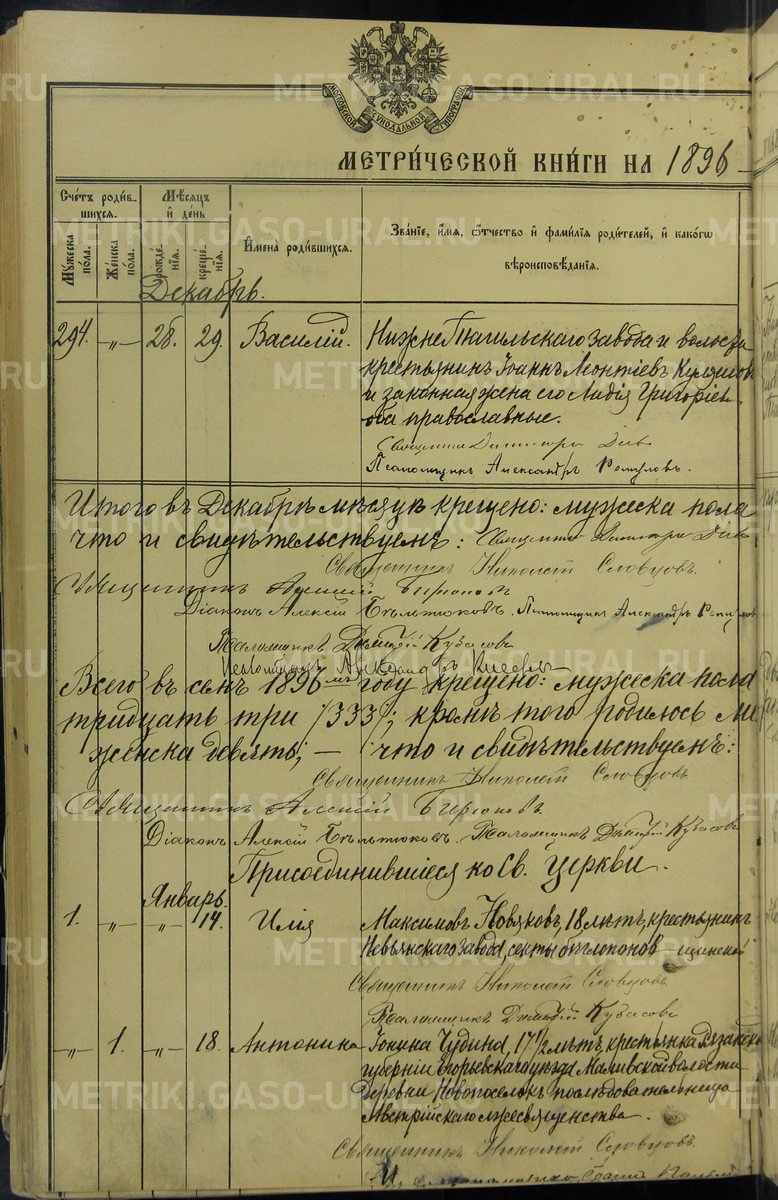 МОСКОВСКОЙ СѴНОДАЛЬНОЙ ТИПОГРАФІИ
МЕТРИ́ЧЕСКОЙ КНИ́ГИ НА 1896
Сче́тъ роди́вшихся.
Му́жеска по́ла.
Же́нска по́ла.
Мѣ́сяцъ и́ де́нь
рожде́нія.
креще́нія.
И́мена̀ роди́вшихся.
Зва́ніе, и́мя, ѻ҆́тчество и́ фами́лія роди́телей, и́ како́гѡ вѣроисповѣ́данія.
Декабрь.
294. „ 28. 29. Василій.
НижнеТагильскаго завода и волости
крестьянинъ Іоаннъ Леонтіевъ
и законная жена его Лидія Григоріева
оба православные.
Священникъ Димитрій
Псаломщикъ Александръ
Итого въ Декабрѣ мѣсяцѣ крещено: мужеска пола
что и свидѣтельствуемъ: Священникъ Димитрій
Священникъ Николай Словцовъ.
Священникъ Алексій Бирюковъ
Діаконъ Алексій Бѣльтюковъ. Псаломщикъ Александръ
Псаломщикъ Дмитрій Кубасовъ
Псаломщикъ Александръ
Всего въ семъ 1896-мъ году крещено: мужеска пола
тридцать три /333/; кромѣ того родилось
женска девять; — что и свидѣтельствуемъ:
Священникъ Николай Словцовъ
Священникъ Алексій Бирюковъ.
Діаконъ Алексій Бѣльтюковъ. Псаломщикъ Дмитрій Кубасовъ
Присоединившіеся ко Св. Церкви.
Январь.
1. „ „ 14. Илія
Максимовъ Новяковъ, 18 лѣтъ, крестьянинъ
Невьянскаго завода, секты бѣглопоповщинской
Священникъ Николай Словцовъ.
Псаломщикъ Дмитрій Кубасовъ
„ 1. „ 18. Антонина
Іонина Чудина, 17 1/2 лѣтъ, крестьянка Рязанской
губерніи Егорьевскаго уѣзда Маливской волости
деревни Новопоселокъ послѣдовательница
Австрійскаго лжесвященства.
Священникъ Николай Словцовъ.
METRIKI.GASO-URAL.RU